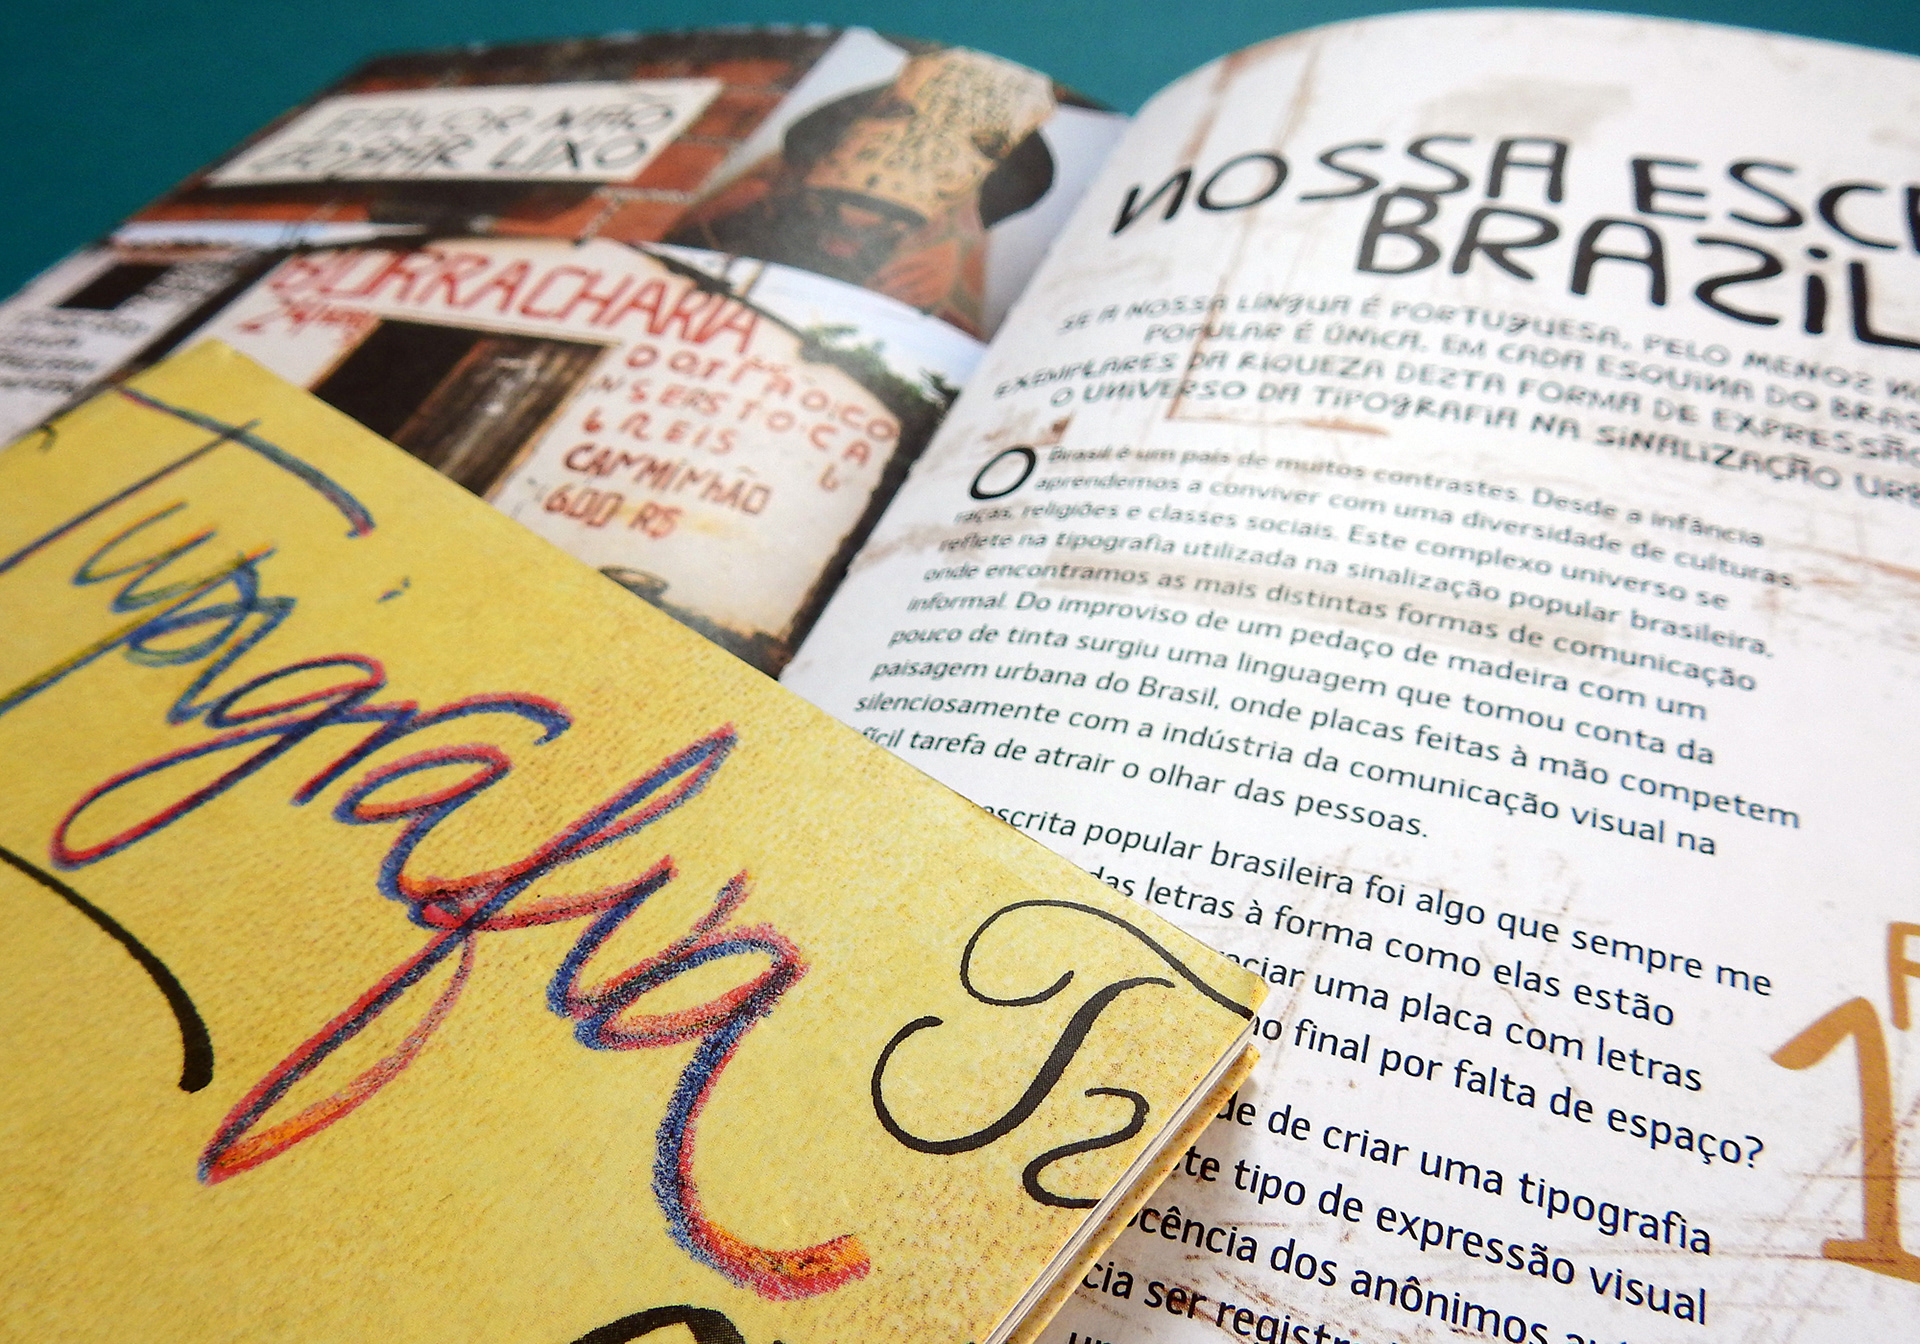 FAVOR NÃO
JOGAR LIXO
BORRACHARIA
6 REIS
CAMMINHÃO
600 R$
Tipigrafia
NOSSA ESC
BRAZIL
SE A NOSSA LÍNGUA É PORTUGUESA, PELO MENOS
POPULAR É ÚNICA. EM CADA ESQUINA DO BRAS
EXEMPLARES DA RIQUEZA DESTA FORMA DE EXPRESSÃO
O UNIVERSO DA TIPOGRAFIA NA SINALIZAÇÃO URB
O Brasil é um país de muitos contrastes. Desde a infância
aprendemos a conviver com uma diversidade de culturas,
raças, religiões e classes sociais. Este complexo universo se
reflete na tipografia utilizada na sinalização popular brasileira,
onde encontramos as mais distintas formas de comunicação
informal. Do improviso de um pedaço de madeira com um
pouco de tinta surgiu uma linguagem que tomou conta da
paisagem urbana do Brasil, onde placas feitas à mão competem
silenciosamente com a indústria da comunicação visual na
fícil tarefa de atrair o olhar das pessoas.
escrita popular brasileira foi algo que sempre me
das letras à forma como elas estão
ciar uma placa com letras
no final por falta de espaço?
de de criar uma tipografia
te tipo de expressão visual
cência dos anônimos
cia ser registr
1